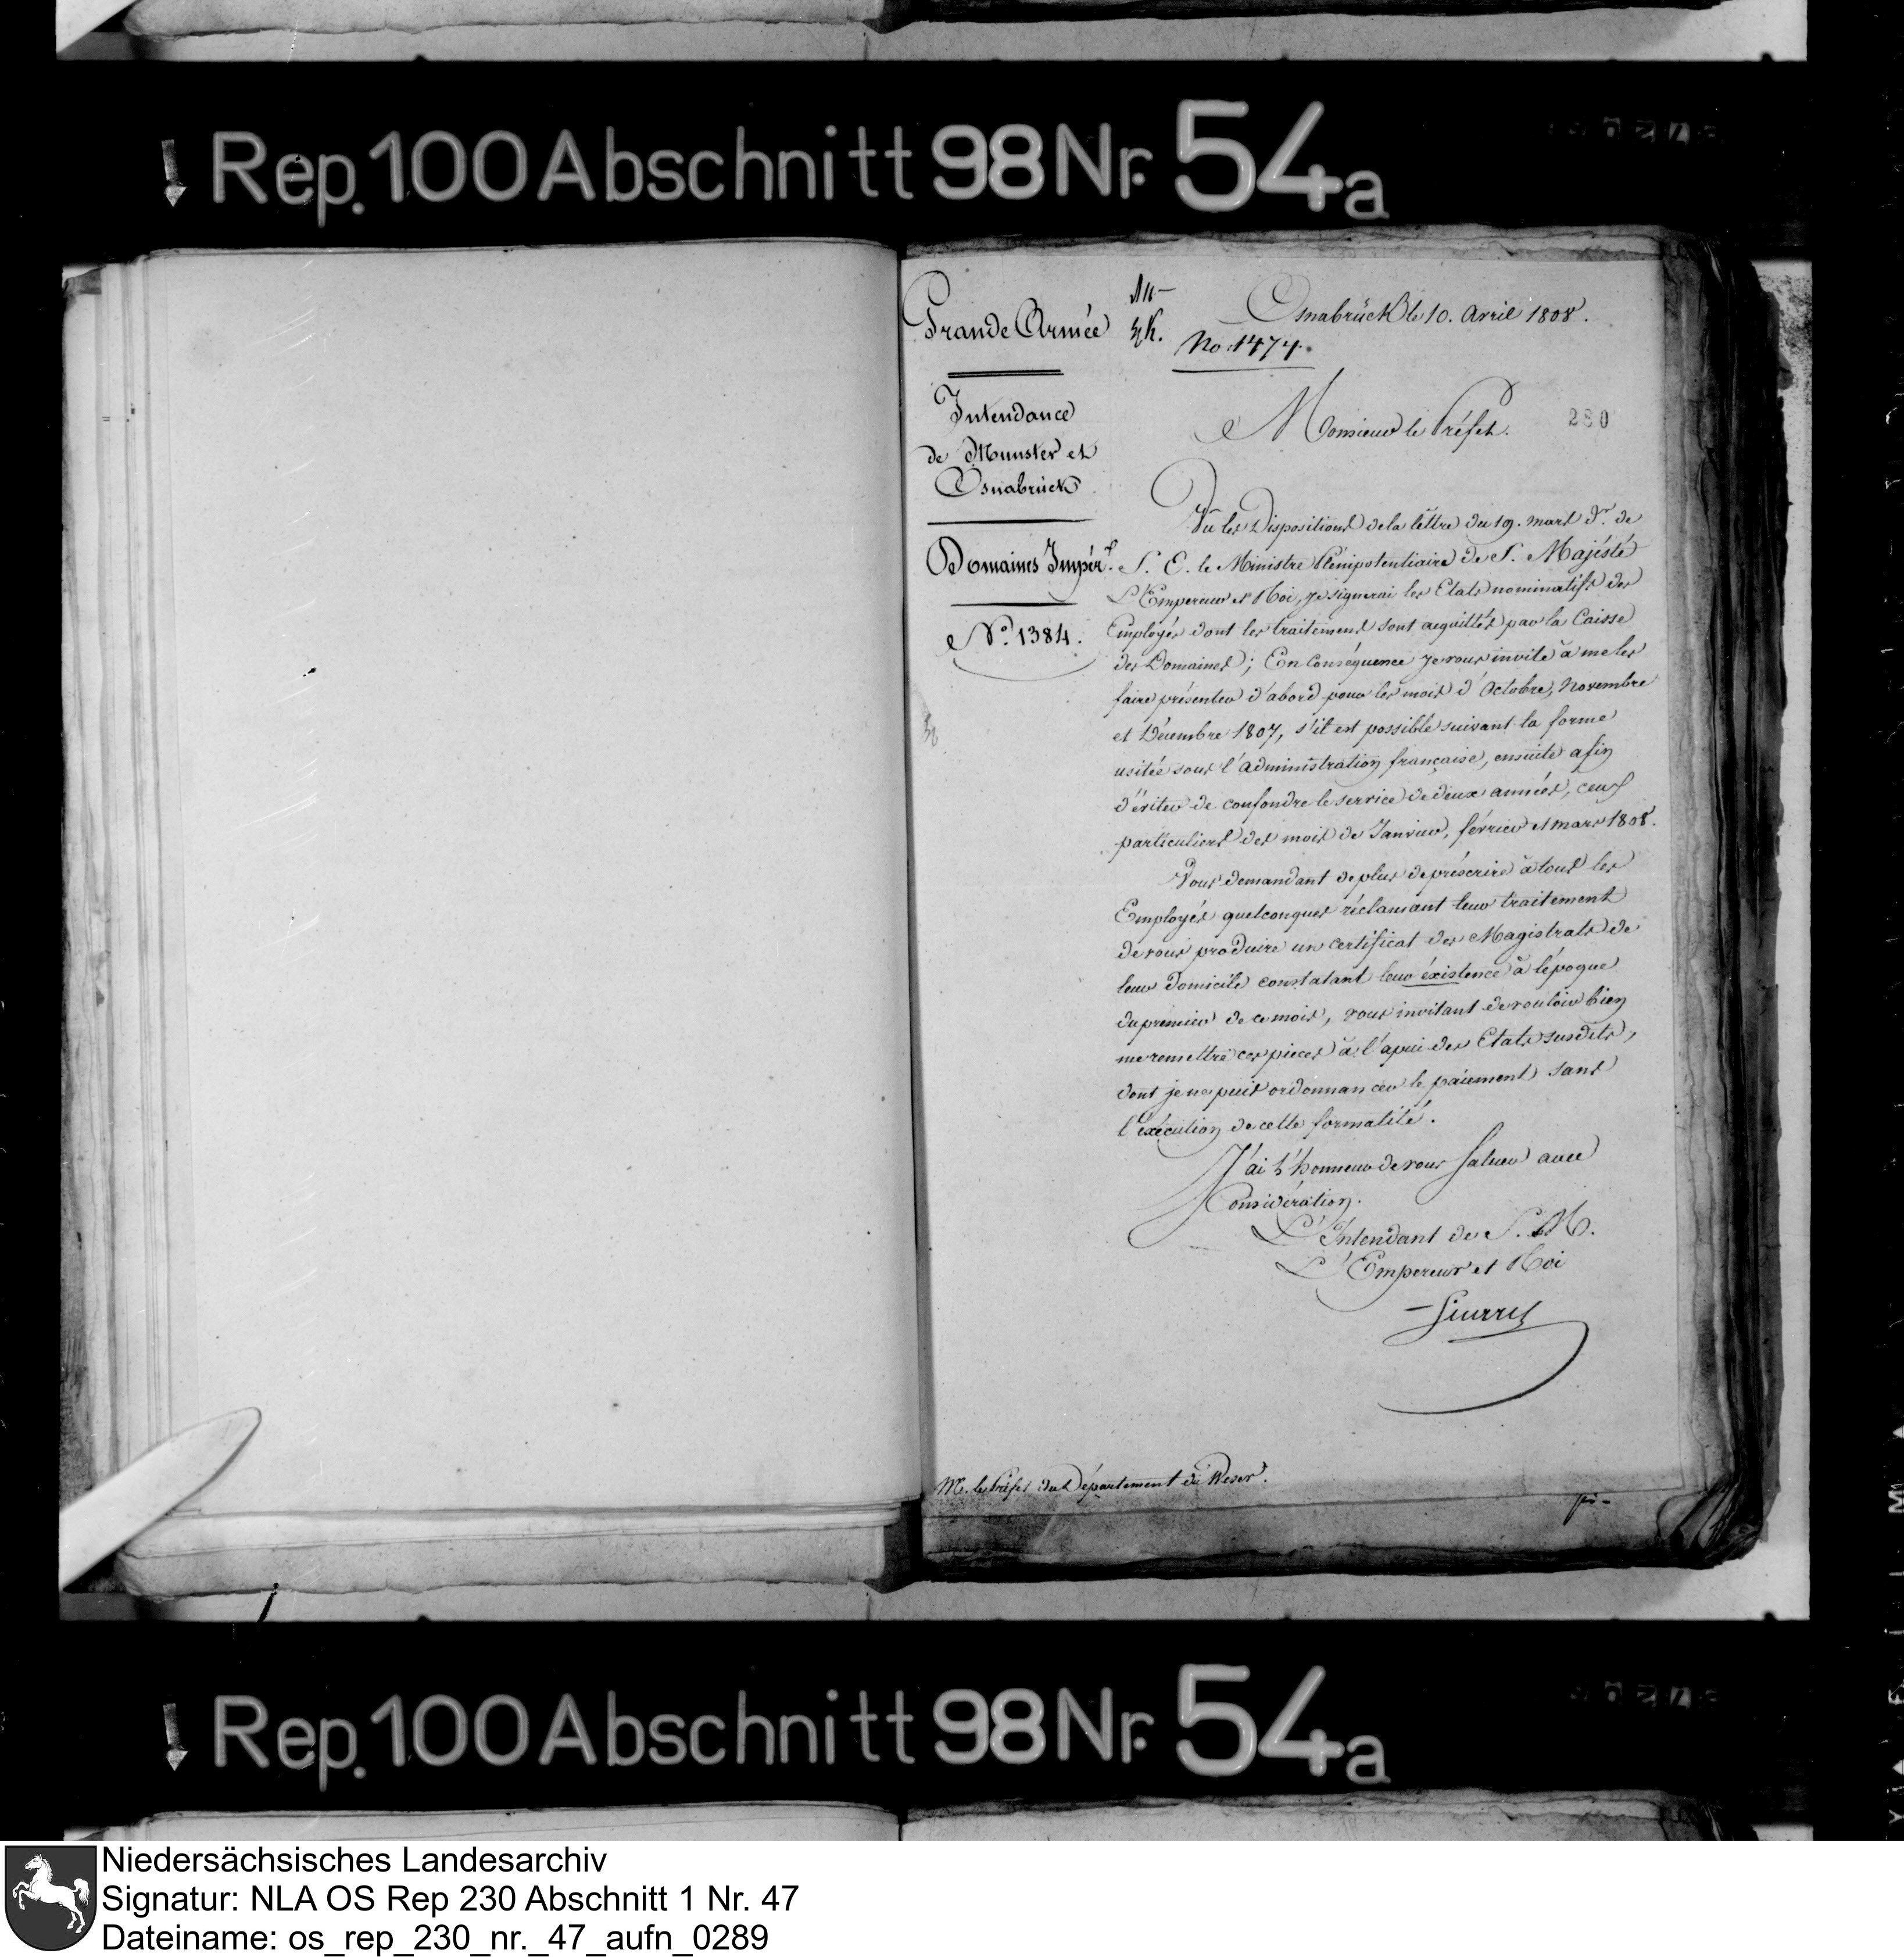 Rep. 100 Abschnitt 98 Nr. 54a
Grande Armée
Intendance
de Munster et
Osnabrück
Domaines Impér.x
No. 1384.
Osnabrück le 10. Avril 1808.
No. 1474.
Monsieur le Préfet.
280
Vu les Dispositions de la lettre du 19. mars dr. de
S. E. le Ministre Plénipotentiaire de S. Majésté
L'Empereur et Roi, je signerai les Etats nominatifs des
Employés dont les traitemens sont acquittés par la Caisse
des Domaines; En Conséquence je vous invite à me les
faire présenter d'abord pour les mois d'Octobre, Novembre
et Décembre 1807, s'il est possible suivant la forme
usitée sous l'administration française, ensuite afin
d'éviter de confondre le service de deux années, ceux
particuliers des mois de Janvier, février et mars 1808.
Vous demandant de plus de préscrire à tous les
Employés quelconques réclamant leur traitement
de vous produire un certificat des Magistrats de
leur domicile constatant leur éxistence à l'époque
du premier de ce mois, vous invitant de vouloir bien
me remettre ces pieces à l'apui des Etats susdits,
dont je ne puis ordonnancer le paiement sans
l'éxécution de cette formalité.
J'ai l'honneur de vous saluer avec
Considération.
L'Intendant de S. M.
L'Empereur et Roi
M. le Préfet du Département du Weser.
Rep. 100 Abschnitt 98 Nr. 54a
Niedersächsisches Landesarchiv
Signatur: NLA OS Rep 230 Abschnitt 1 Nr. 47
Dateiname: os_rep_230_nr._47_aufn_0289